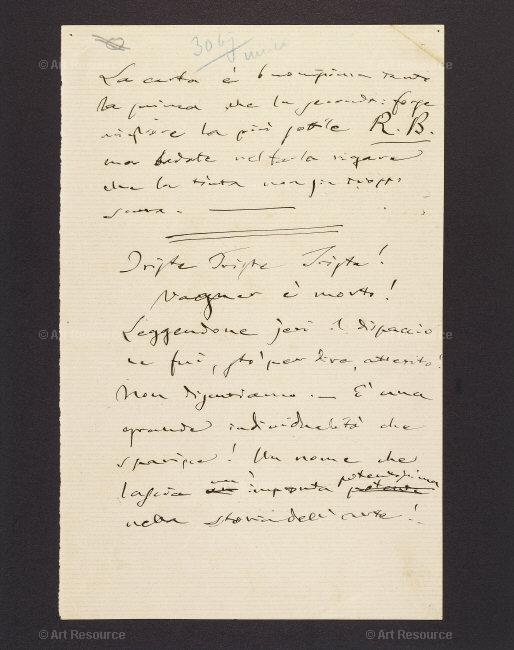 © Art Resource
© Art Resource
La carta è buonissima tanto
la prima che la seconda: forse
migliore la più sottile R.B.
ma badate nel farla rigare
che la tinta non sia troppo
scura.
Triste Triste Triste!
Vagner è morto!
Leggendone jeri il dispaccio
ne fui, stò per dire, atterrito!
Non discutiamo. – È una
grande individualità che
sparisce! Un nome che
lascia un' impronta potentissima
nella storia dell'arte!
© Art Resource
© Art Resource
© Art Resource
© Art Resource